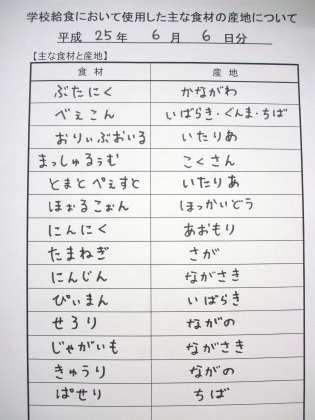 学校給食において使用した主な食材の産地について
平成 25年 6月 6日分
【主な食材と産地】
食材 産地
ぶたにく かながわ
べぇこん いばらき・ぐんま・ちば
おりぃぶおいる いたりあ
まっしゅるぅむ こくさん
とまとぺぇすと いたりあ
ほぉるこぉん ほっかいどう
にんにく あおもり
たまねぎ さが
にんじん ながさき
ぴぃまん いばらき
せろり ながの
じゃがいも ながさき
きゅうり ながの
ぱせり ちば